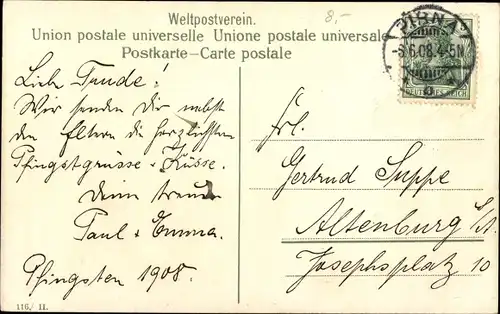 Weltpostverein.
8,-
Union postale universelle Unione postale universale
Postkarte-Carte postale
PIRNA
-8.6.08.4-5N
DEUTSCHES REICH
Liebe Trude!
Wir senden Dir nebst
den Eltern die herzlichsten
Pfingstgrüsse & Küsse.
Deine treuen
Paul & Emma.
Pfingsten 1908.
Frl.
Gertrud Suppe
Altenburg S/A.
Josephsplatz 10
116. II.